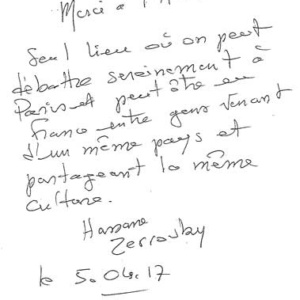 Merci à
Seul lieu où on peut
débattre sereinement à
Paris et peut être en
France entre gens venant
d'un même pays et
partageant la même
culture.
Hassane
Zerrouky
le 5.04.17